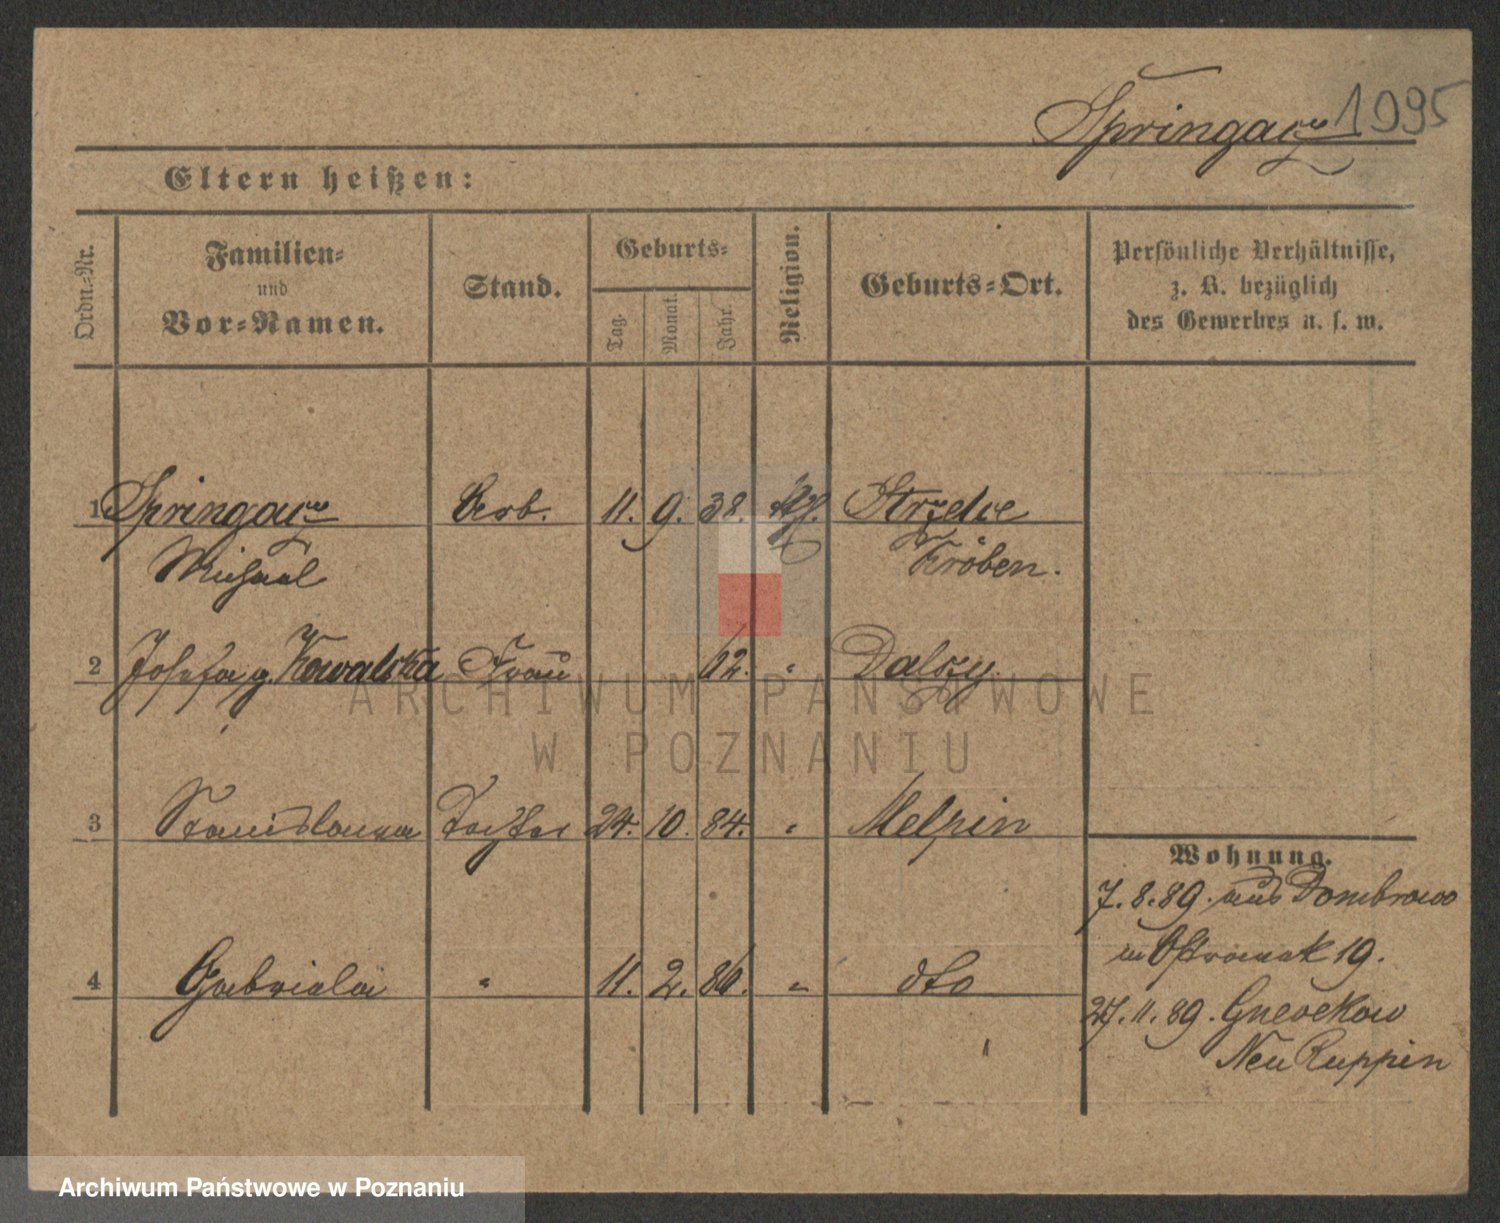 Springacz 1995
Eltern heißen:
Ordn.-Nr.
Familien-
und
Vor-Namen.
Stand.
Geburts-
Tag.
Monat.
Jahr.
Religion.
Geburts-Ort.
Persönliche Verhältnisse,
z. B. bezüglich
des Gewerbes u. s. w.
1 Springacz Arb. 11. 9. 38. Strzelce
Michael Kröben.
2 Josefa g. Kowalska Frau 62. " Dalszy.
3 Stanislawa Tochter 24. 10. 84. " Melpin
Wohnung.
7. 8. 89. aus Dombrowo
in Ostrowek 19.
4 Gabriela " 11. 2. 86. " dto
27. 11. 89. Gnevekow
Neu Ruppin
ARCHIWUM PAŃSTWOWE
W POZNANIU
Archiwum Państwowe w Poznaniu